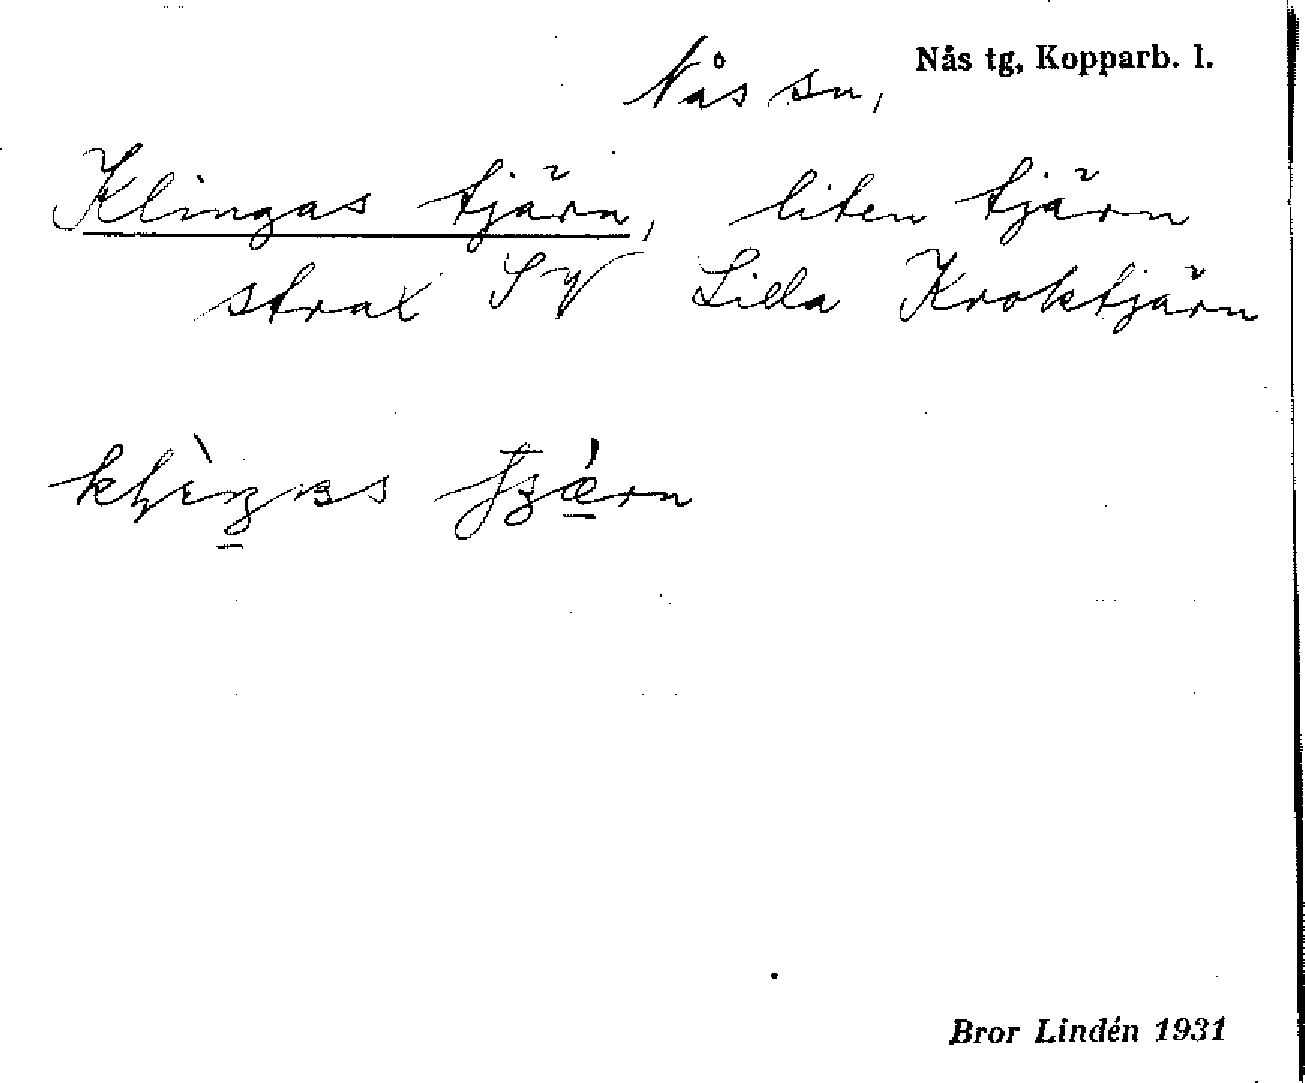 Nås tg, Kopparb. l.
Nås sn,
Klingas tjärn, liten tjärn
strax SV Lilla Kroktjärn
Bror Lindén 1931